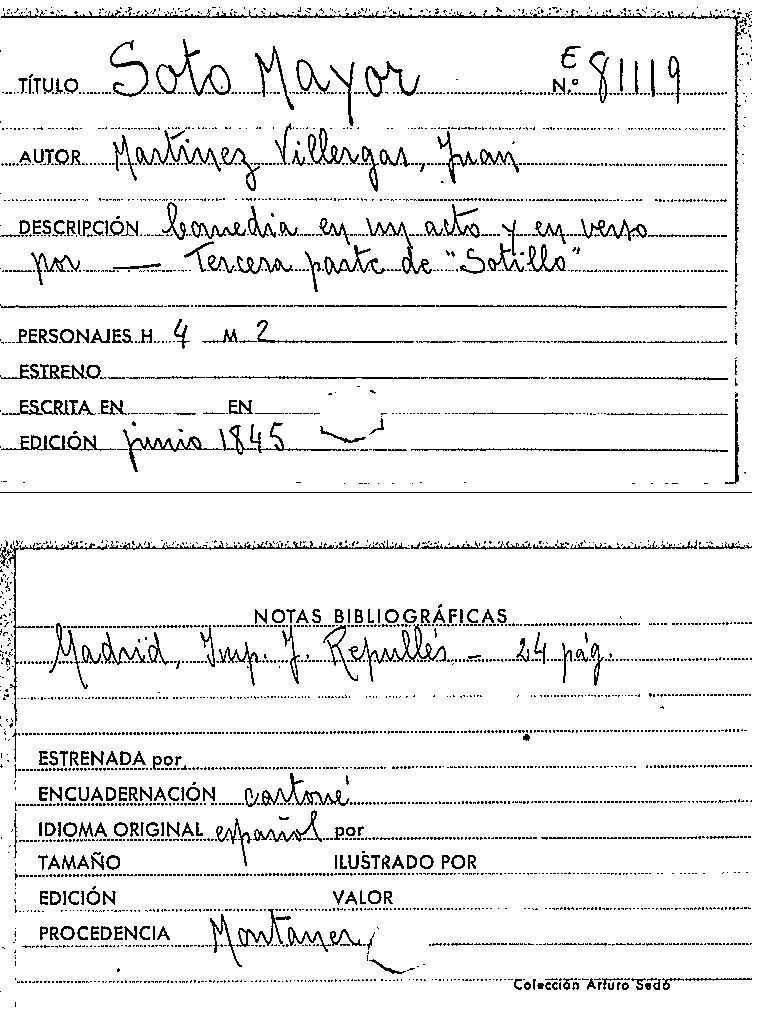 TÍTULO Soto Mayor E N.º 81119
AUTOR Martinez Villergas, Juan
DESCRIPCIÓN Comedia en un acto y en verso
por — Tercera parte de "Sotillo"
PERSONAJES H. 4 M. 2
ESTRENO
ESCRITA EN EN
EDICIÓN junio 1845
NOTAS BIBLIOGRÁFICAS
Madrid, Imp. J. Repullés - 24 pág.
ESTRENADA por
ENCUADERNACIÓN cartoné
IDIOMA ORIGINAL español por
TAMAÑO ILUSTRADO POR
EDICIÓN VALOR
PROCEDENCIA Montaner
Colección Arturo Sedó